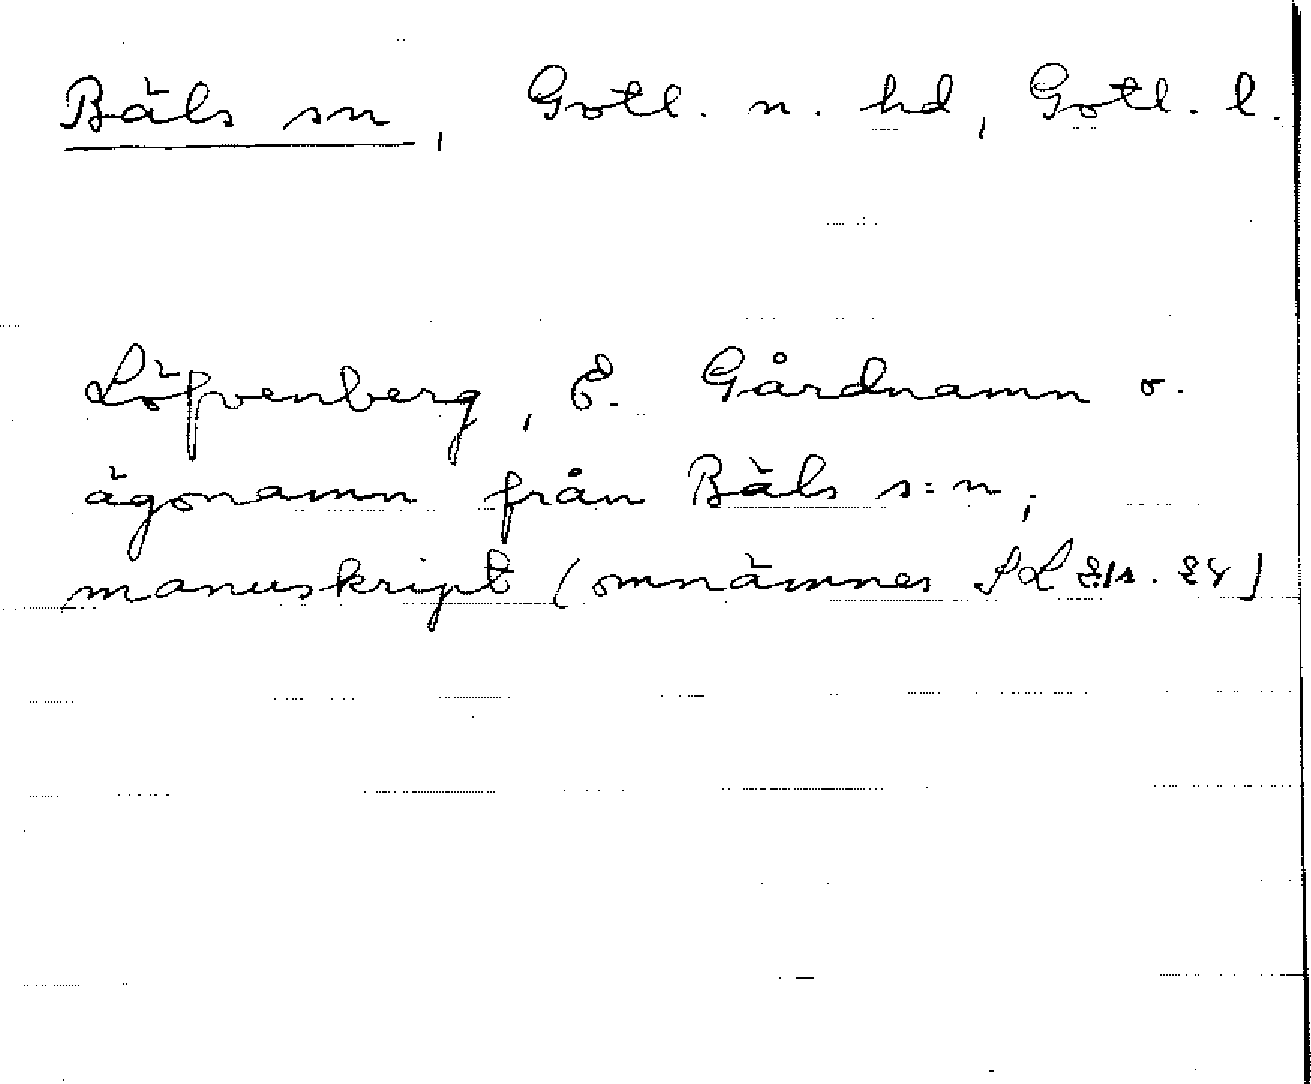 Bäls sn, Gotl. n. hd, Gotl. l.
Löfvenberg, E. Gårdnamn o.
ägonamn från Bäls s:n,
manuskript (omnämnes SL